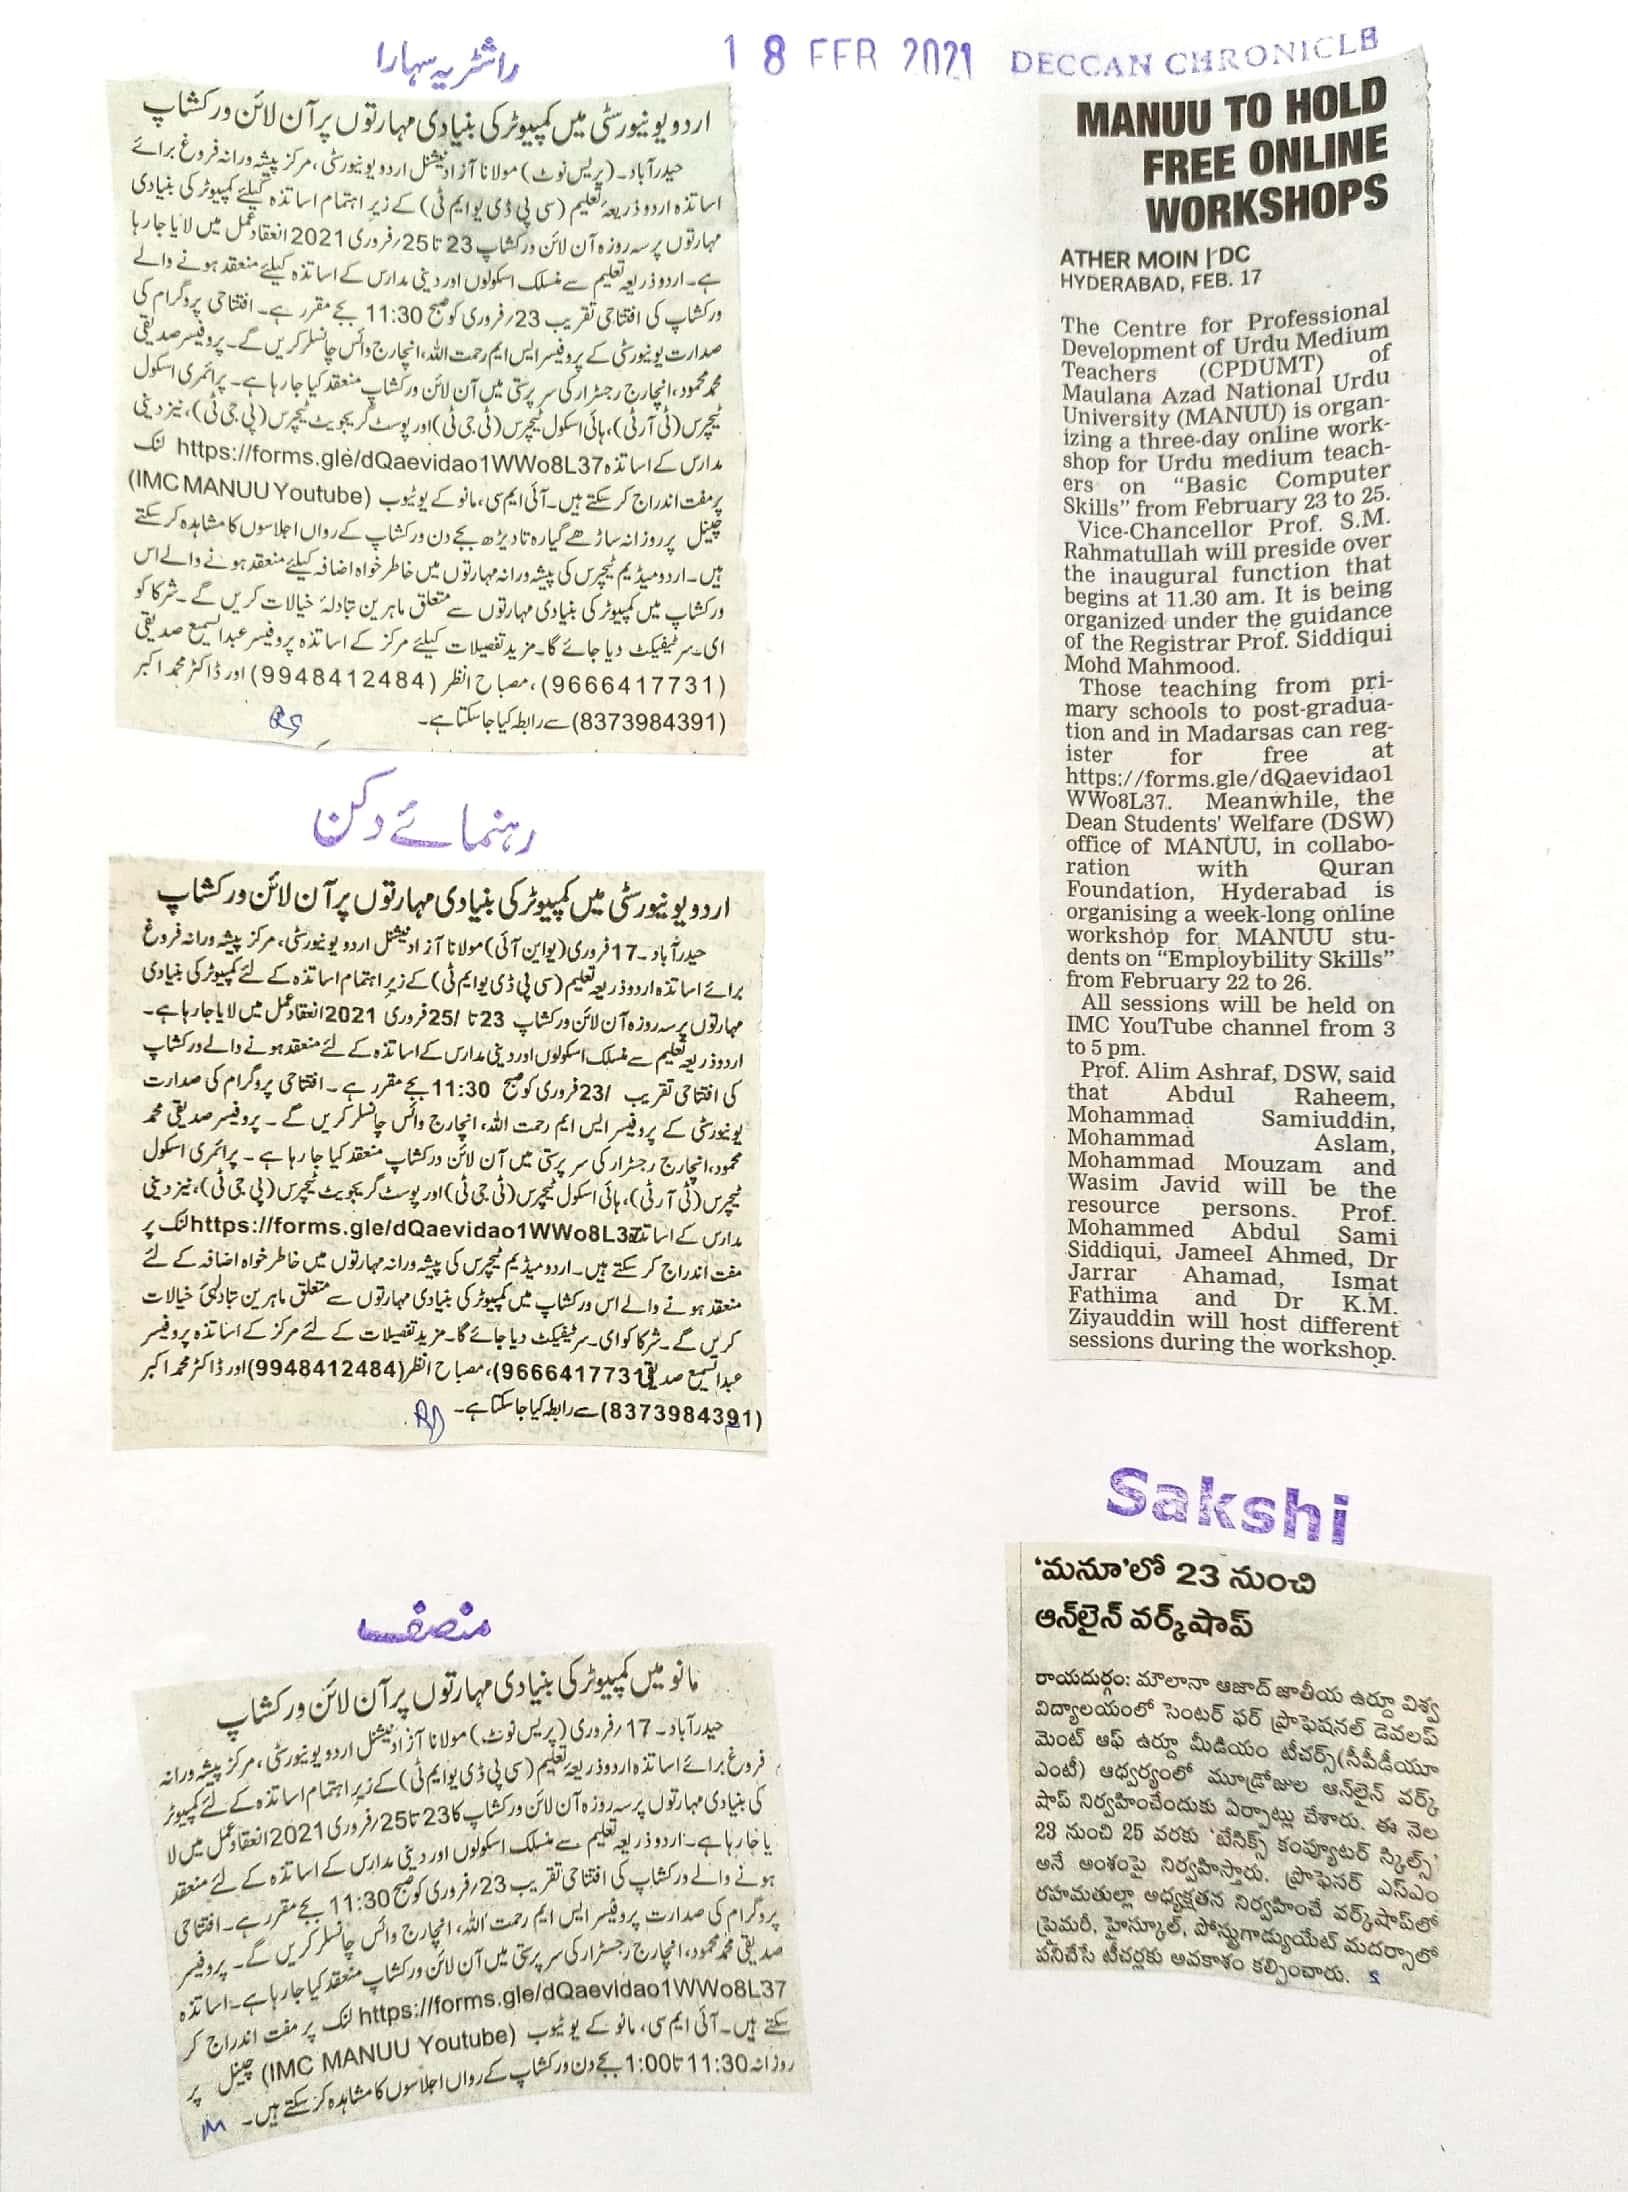 راشٹریہ سہارا
18 FEB 2021
DECCAN CHRONICLE
اردو یونیورسٹی میں کمپیوٹر کی بنیادی مہارتوں پر آن لائن ورکشاپ
حیدرآباد۔ (پریس نوٹ) مولانا آزاد نیشنل اردو یونیورسٹی، مرکز پیشہ ورانہ فروغ برائے
اساتذہ اردو ذریعہ تعلیم (سی پی ڈی یو ایم ٹی) کے زیر اہتمام اساتذہ کیلئے کمپیوٹر کی بنیادی
مہارتوں پر سہ روزہ آن لائن ورکشاپ 23 تا 25؍فروری 2021 انعقاد عمل میں لایا جا رہا
ہے۔ اردو ذریعہ تعلیم سے منسلک اسکولوں اور دینی مدارس کے اساتذہ کیلئے منعقد ہونے والے
ورکشاپ کی افتتاحی تقریب 23؍فروری کو صبح 11:30 بجے مقرر ہے۔ افتتاحی پروگرام کی
صدارت یونیورسٹی کے پروفیسر ایس ایم رحمت اللہ، انچارج وائس چانسلر کریں گے۔ پروفیسر صدیقی
محمد محمود، انچارج رجسٹرار کی سرپرستی میں آن لائن ورکشاپ منعقد کیا جا رہا ہے۔ پرائمری اسکول
ٹیچرس (ٹی آر ٹی)، ہائی اسکول ٹیچرس (ٹی جی ٹی) اور پوسٹ گریجویٹ ٹیچرس (پی جی ٹی)، نیز دینی
مدارس کے اساتذہ https://forms.gle/dQaevidao1WWo8L37 لنک
پر مفت اندراج کر سکتے ہیں۔ آئی ایم سی، مانو کے یوٹیوب (IMC MANUU Youtube)
چینل پر روزانہ ساڑھے گیارہ تا دیڑھ بجے دن ورکشاپ کے رواں اجلاسوں کا مشاہدہ کر سکتے
ہیں۔ اردو میڈیم ٹیچرس کی پیشہ ورانہ مہارتوں میں خاطر خواہ اضافہ کیلئے منعقد ہونے والے اس
ورکشاپ میں کمپیوٹر کی بنیادی مہارتوں سے متعلق ماہرین تبادلۂ خیالات کریں گے۔ شرکا کو
ای۔سرٹیفیکٹ دیا جائے گا۔ مزید تفصیلات کیلئے مرکز کے اساتذہ پروفیسر عبدالسمیع صدیقی
(9666417731)، مصباح انظر (9948412484) اور ڈاکٹر محمد اکبر
(8373984391) سے رابطہ کیا جا سکتا ہے۔
رہنمائے دکن
اردو یونیورسٹی میں کمپیوٹر کی بنیادی مہارتوں پر آن لائن ورکشاپ
حیدرآباد ۔17 فروری (یو این آئی) مولانا آزاد نیشنل اردو یونیورسٹی، مرکز پیشہ ورانہ فروغ
برائے اساتذہ اردو ذریعہ تعلیم (سی پی ڈی یو ایم ٹی) کے زیر اہتمام اساتذہ کے لئے کمپیوٹر کی بنیادی
مہارتوں پر سہ روزہ آن لائن ورکشاپ 23 تا /25 فروری 2021 انعقاد عمل میں لایا جا رہا ہے۔
اردو ذریعہ تعلیم سے منسلک اسکولوں اور دینی مدارس کے اساتذہ کے لئے منعقد ہونے والے ورکشاپ
کی افتتاحی تقریب /23 فروری کو صبح 11:30 بجے مقرر ہے۔ افتتاحی پروگرام کی صدارت
یونیورسٹی کے پروفیسر ایس ایم رحمت اللہ، انچارج وائس چانسلر کریں گے ۔ پروفیسر صدیقی محمد
محمود، انچارج رجسٹرار کی سرپرستی میں آن لائن ورکشاپ منعقد کیا جا رہا ہے ۔ پرائمری اسکول
ٹیچرس (ٹی آر ٹی)، ہائی اسکول ٹیچرس (ٹی جی ٹی) اور پوسٹ گریجویٹ ٹیچرس (پی جی ٹی)، نیز دینی
مدارس کے اساتذہ https://forms.gle/dQaevidao1WWo8L37 لنک پر
مفت اندراج کر سکتے ہیں۔ اردو میڈیم ٹیچرس کی پیشہ ورانہ مہارتوں میں خاطر خواہ اضافہ کے لئے
منعقد ہونے والے اس ورکشاپ میں کمپیوٹر کی بنیادی مہارتوں سے متعلق ماہرین تبادلئ خیالات
کریں گے ۔ شرکا کو ای۔ سرٹیفیکٹ دیا جائے گا۔ مزید تفصیلات کے لئے مرکز کے اساتذہ پروفیسر
عبدالسمیع صدیقی 9666417731)، مصباح انظر (9948412484) اور ڈاکٹر محمد اکبر
(8373984391) سے رابطہ کیا جا سکتا ہے۔
منصف
مانو میں کمپیوٹر کی بنیادی مہارتوں پر آن لائن ورکشاپ
حیدرآباد۔ 17؍فروری (پریس نوٹ) مولانا آزاد نیشنل اردو یونیورسٹی، مرکز پیشہ ورانہ
فروغ برائے اساتذہ اردو ذریعہ تعلیم (سی پی ڈی یو ایم ٹی) کے زیر اہتمام اساتذہ کے لئے کمپیوٹر
کی بنیادی مہارتوں پر سہ روزہ آن لائن ورکشاپ کا 23 تا 25؍فروری 2021 انعقاد عمل میں لا
یا جا رہا ہے۔ اردو ذریعہ تعلیم سے منسلک اسکولوں اور دینی مدارس کے اساتذہ کے لئے منعقد
ہونے والے ورکشاپ کی افتتاحی تقریب 23؍فروری کو صبح 11:30 بجے مقرر ہے۔ افتتاحی
پروگرام کی صدارت پروفیسر ایس ایم رحمت اللہ، انچارج وائس چانسلر کریں گے۔ پروفیسر
صدیقی محمد محمود، انچارج رجسٹرار کی سرپرستی میں آن لائن ورکشاپ منعقد کیا جا رہا ہے۔ اساتذہ
https://forms.gle/dQaevidao1WWo8L37 لنک پر مفت اندراج کر
سکتے ہیں۔ آئی ایم سی، مانو کے یوٹیوب (IMC MANUU Youtube) چینل پر
روزانہ 11:30 تا 1:00 بجے دن ورکشاپ کے رواں اجلاسوں کا مشاہدہ کر سکتے ہیں۔
MANUU TO HOLD
FREE ONLINE
WORKSHOPS
ATHER MOIN | DC
HYDERABAD, FEB. 17
The Centre for Professional
Development of Urdu Medium
Teachers (CPDUMT) of
Maulana Azad National Urdu
University (MANUU) is organ-
izing a three-day online work-
shop for Urdu medium teach-
ers on "Basic Computer
Skills" from February 23 to 25.
Vice-Chancellor Prof. S.M.
Rahmatullah will preside over
the inaugural function that
begins at 11.30 am. It is being
organized under the guidance
of the Registrar Prof. Siddiqui
Mohd Mahmood.
Those teaching from pri-
mary schools to post-gradua-
tion and in Madarsas can reg-
ister for free at
https://forms.gle/dQaevidao1
WWo8L37. Meanwhile, the
Dean Students' Welfare (DSW)
office of MANUU, in collabo-
ration with Quran
Foundation, Hyderabad is
organising a week-long online
workshop for MANUU stu-
dents on "Employbility Skills"
from February 22 to 26.
All sessions will be held on
IMC YouTube channel from 3
to 5 pm.
Prof. Alim Ashraf, DSW, said
that Abdul Raheem,
Mohammad Samiuddin,
Mohammad Aslam,
Mohammad Mouzam and
Wasim Javid will be the
resource persons. Prof.
Mohammed Abdul Sami
Siddiqui, Jameel Ahmed, Dr
Jarrar Ahamad, Ismat
Fathima and Dr K.M.
Ziyauddin will host different
sessions during the workshop.
Sakshi
'మనూ'లో 23 నుంచి
ఆన్‌లైన్ వర్క్‌షాప్
రాయదుర్గం: మౌలానా ఆజాద్ జాతీయ ఉర్దూ విశ్వ
విద్యాలయంలో సెంటర్ ఫర్ ప్రొఫెషనల్ డెవలప్
మెంట్ ఆఫ్ ఉర్దూ మీడియం టీచర్స్(సీపీడీయూ
ఎంటీ) ఆధ్వర్యంలో మూడ్రోజుల ఆన్‌లైన్ వర్క్
షాప్ నిర్వహించేందుకు ఏర్పాట్లు చేశారు. ఈ నెల
23 నుంచి 25 వరకు 'బేసిక్స్ కంప్యూటర్ స్కిల్స్'
అనే అంశంపై నిర్వహిస్తారు. ప్రొఫెసర్ ఎస్ఎం
రహమతుల్లా అధ్యక్షతన నిర్వహించే వర్క్‌షాప్‌లో
ప్రైమరీ, హైస్కూల్, పోస్టుగాడ్యుయేట్ మదర్సాలో
పనిచేసే టీచర్లకు అవకాశం కల్పించారు.